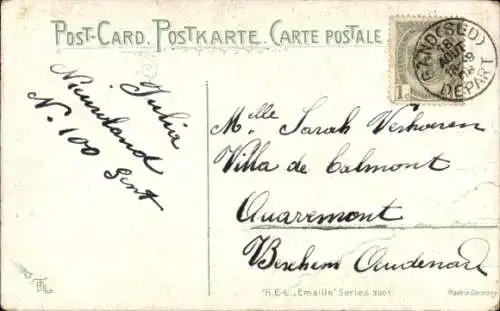 POST-CARD. POSTKARTE. CARTE POSTALE
GAND (SUD)
AOUT
DEPART
1c
Julia
Nieuwland
N. 100 Gent
Melle Sarah Verhoeren
Villa de Calmont
Quaremont
Berchem Audenarde
"R.E.L., Emaille" Series 3901
Made in Germany